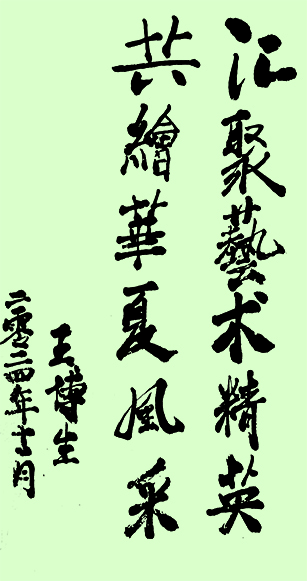 汇聚藝术精英
共繪華夏風采
王博生
二零二四年十一月